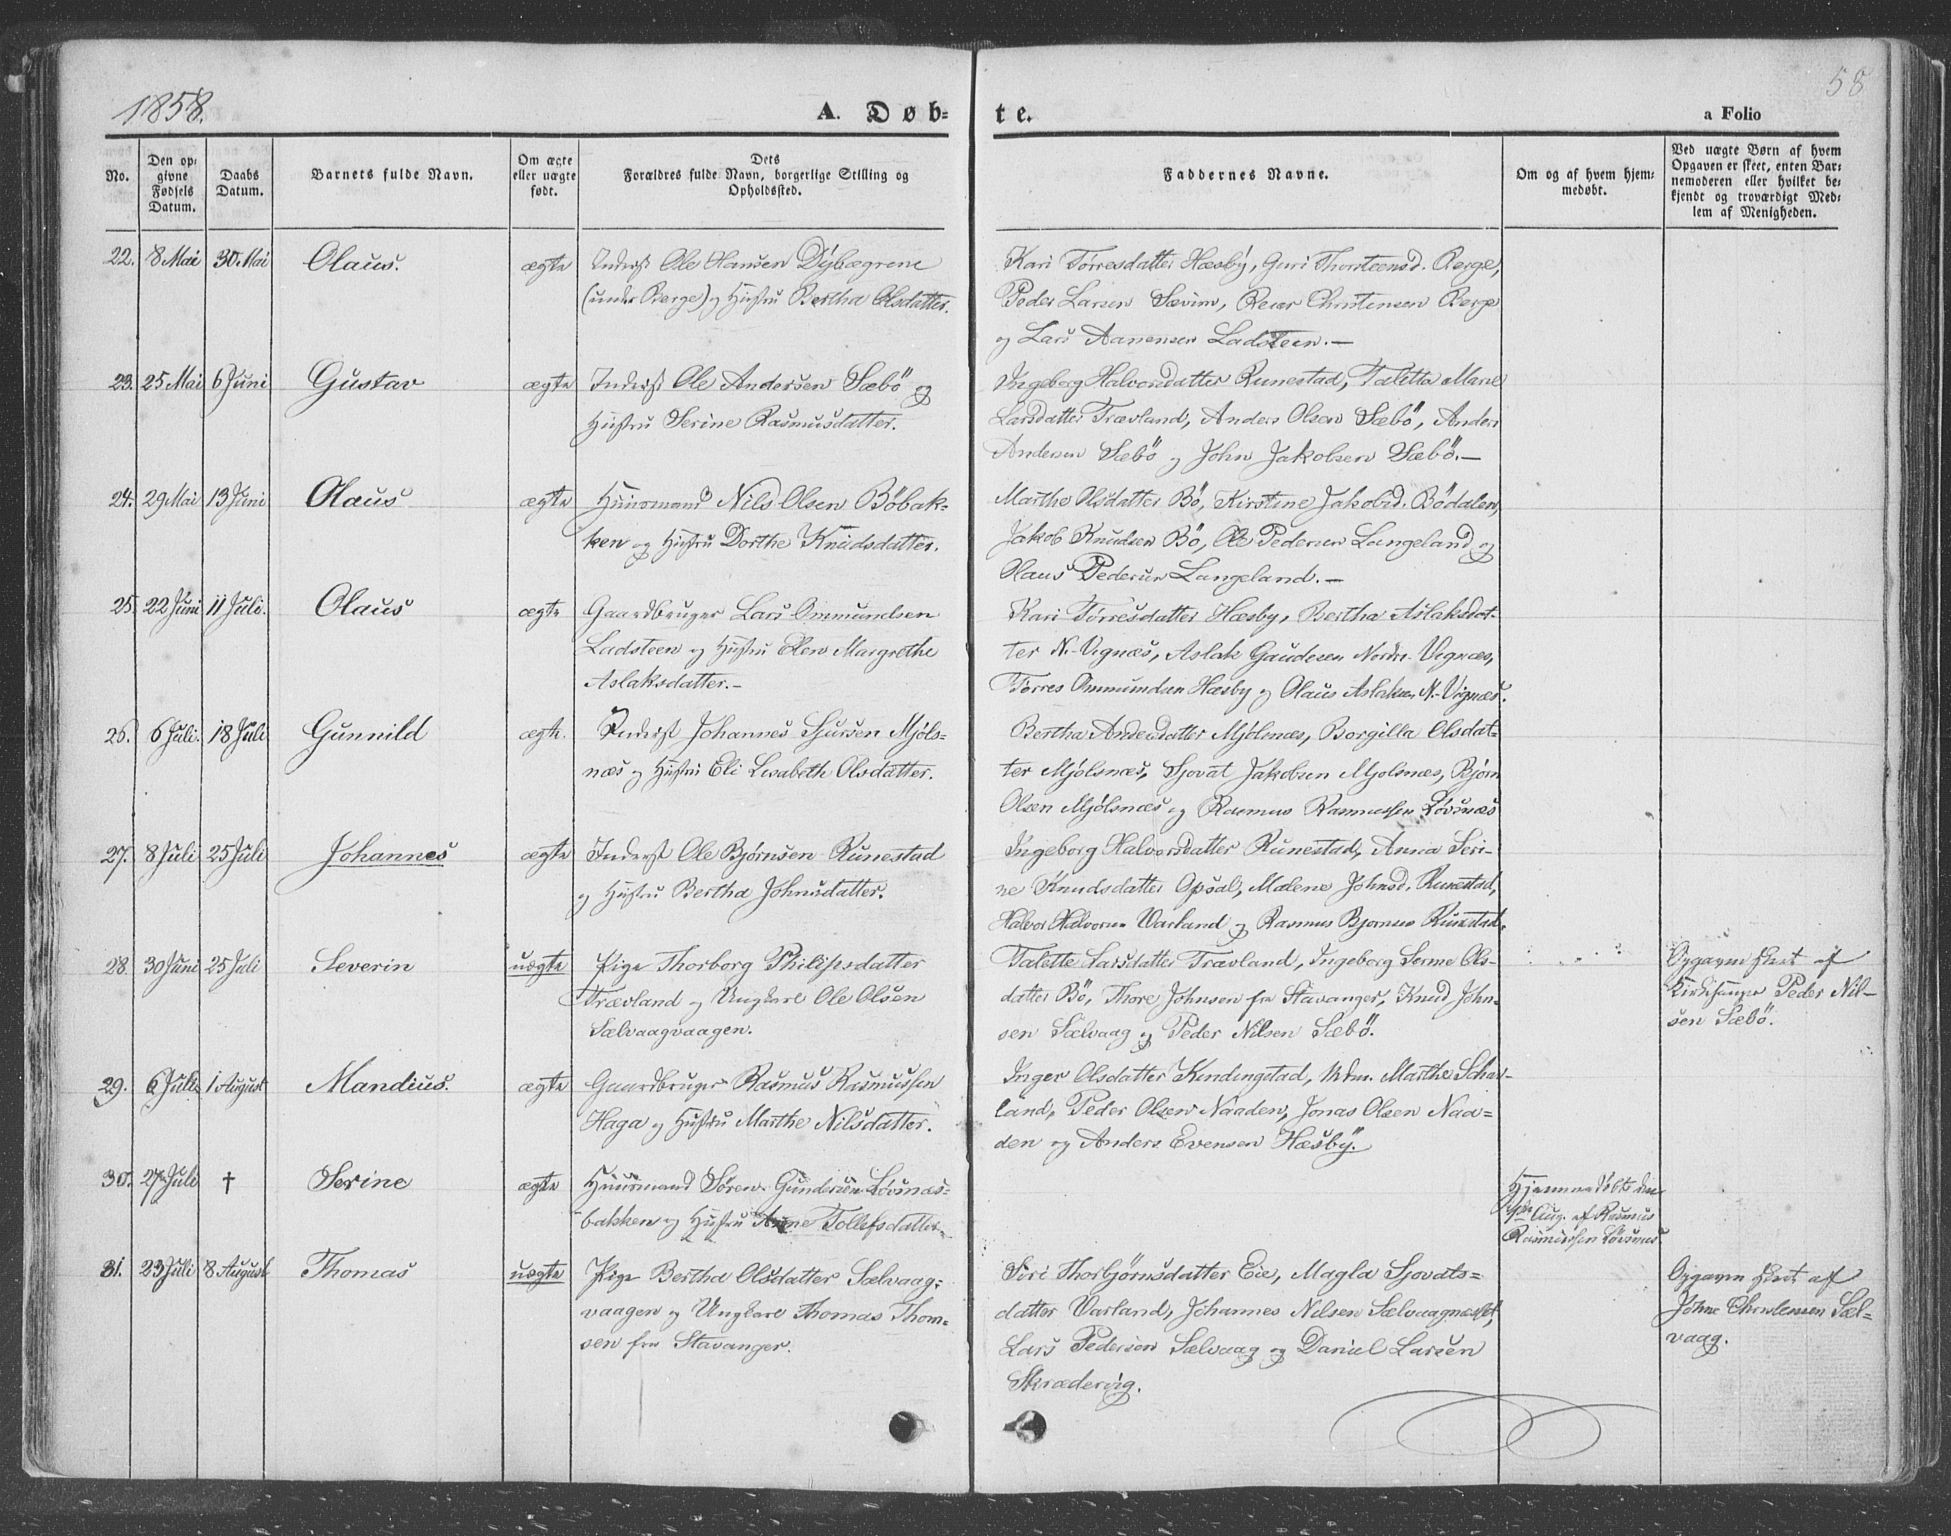 1858.
A. Døb=
te.
a Folio
58
No.
Den op=
givne
Fødsels
Datum.
Daabs
Datum.
Barnets fulde Navn.
Om ægte
eller uægte
født.
Dets
Forældres fulde Navn, borgerlige Stilling og
Opholdssted.
Faddernes Navne.
Om og af hvem hjem=
medøbt.
Ved uægte Børn af hvem
Opgaven er skeet, enten Bar=
nemoderen eller hvilket be=
kjendt og troværdigt Med=
lem af Menigheden.
22. 8 Mai 30. Mai Olaus. ægte Inderst Ole Hansen Dybægrene
(under Berge) og Hustru Bertha Olsdatter.
Kari Tørresdatter Hæsby, Guri Thorsteensd. Berge,
Peder Larsen Sævim, Reiar Christensen Berge
og Lars Aanensen Ladsteen.—
23. 25 Mai 6 Juni Gustav ægte Inderst Ole Andersen Sæbö og
Hustru Serine Rasmusdatter.
Ingeborg Halvorsdatter Runestad, Taletta Marie
Larsdatter Trævland, Anders Olsen Sæbö, Anders
Andersen Sæbö og John Jakobsen Sæbö.—
24. 29 Mai 13 Juni Olaus ægte Huusmand Nils Olsen Böbak=
ken og Hustru Dorthe Knudsdatter.
Marthe Olsdatter Bö, Kirstine Jakobsd. Bödalen,
Jakob Knudsen Bö, Ole Pedersen Langeland og
Olaus Pedersen Langeland.—
25. 22 Juni 11 Juli. Olaus ægte Gaardbruger Lars Ommundsen
Ladsteen og Hustru Elen Margrethe
Aslaksdatter.—
Kari Tørresdatter Hæsby, Bertha Aslaksdat=
ter N. Vignæs, Aslak Gaudesen Nordre Vignæs,
Tørres Ommundsen Hæsby og Olaus Aslaksen N. Vignæs.
26. 6 Juli. 18 Juli Gunnild ægte. Inderst Johannes Sjursen Mjøls=
næs og Hustru Eli Lisabeth Olsdatter.
Bertha Andersdatter Mjölsnæs, Borgilla Olsdat=
ter Mjölsnæs, Sjovat Jakobsen Mjolsnæs, Bjørn
Olsen Mjölsnæs og Rasmus Rasmussen Løvsnæs
27. 8 Juli 25 Juli Johannes ægte Inderst Ole Bjørnsen Runestad
og Hustru Bertha Johnsdatter.
Ingeborg Halvorsdatter Runestad, Anna Seri=
ne Knudsdatter Opsal, Malene Johnsd. Runestad,
Halvor Halvorsen Varland og Rasmus Bjornsen Runestad.
28 30 Juni 25 Juli Severin uægte Pige Thorborg Philipsdatter
Trævland og Ungkarl Ole Olsen
Sælvaagvaagen.
Talette Larsdatter Trævland, Ingeborg Serine Ols=
datter Bö, Thore Johnsen fra Stavanger, Knud John=
sen Sælvaag og Peder Nilsen Sæbö.
Opgaven skeet af
Kirkesanger Peder Nil=
sen Sæbö.
29. 6 Juli 1 August Mandius. ægte Gaardbruger Rasmus Rasmussen
Haga og Hustru Marthe Nilsdatter.
Inger Olsdatter Kindingstad, Mdm. Marthe
land, Peder Olsen Naaden, Jonas Olsen Naa=
den og Anders Evensen Hæsby.
30. 27 Juli † Serine ægte Huusmand Søren Gundersen Løvsnæs=
bakken og Hustru Anne Tollefsdatter.
Hjemmedøbt den
Aug. af Rasmus
Rasmussen Løvsnæs.
31. 23 Juli 8 August Thomas uægte Pige Bertha Olsdatter Sælvaag=
vaagen og Ungkarl Thomas Thom=
sen fra Stavanger.
Siri Thorbjørnsdatter Eie, Magla Sjovats=
datter Varland, Johannes Nilsen Sælvaagnæsset,
Lars Pedersen Sælvaag og Daniel Larsen
Skrædervig.
Opgaven skeet af
Johne Christensen Sæl=
vaag.